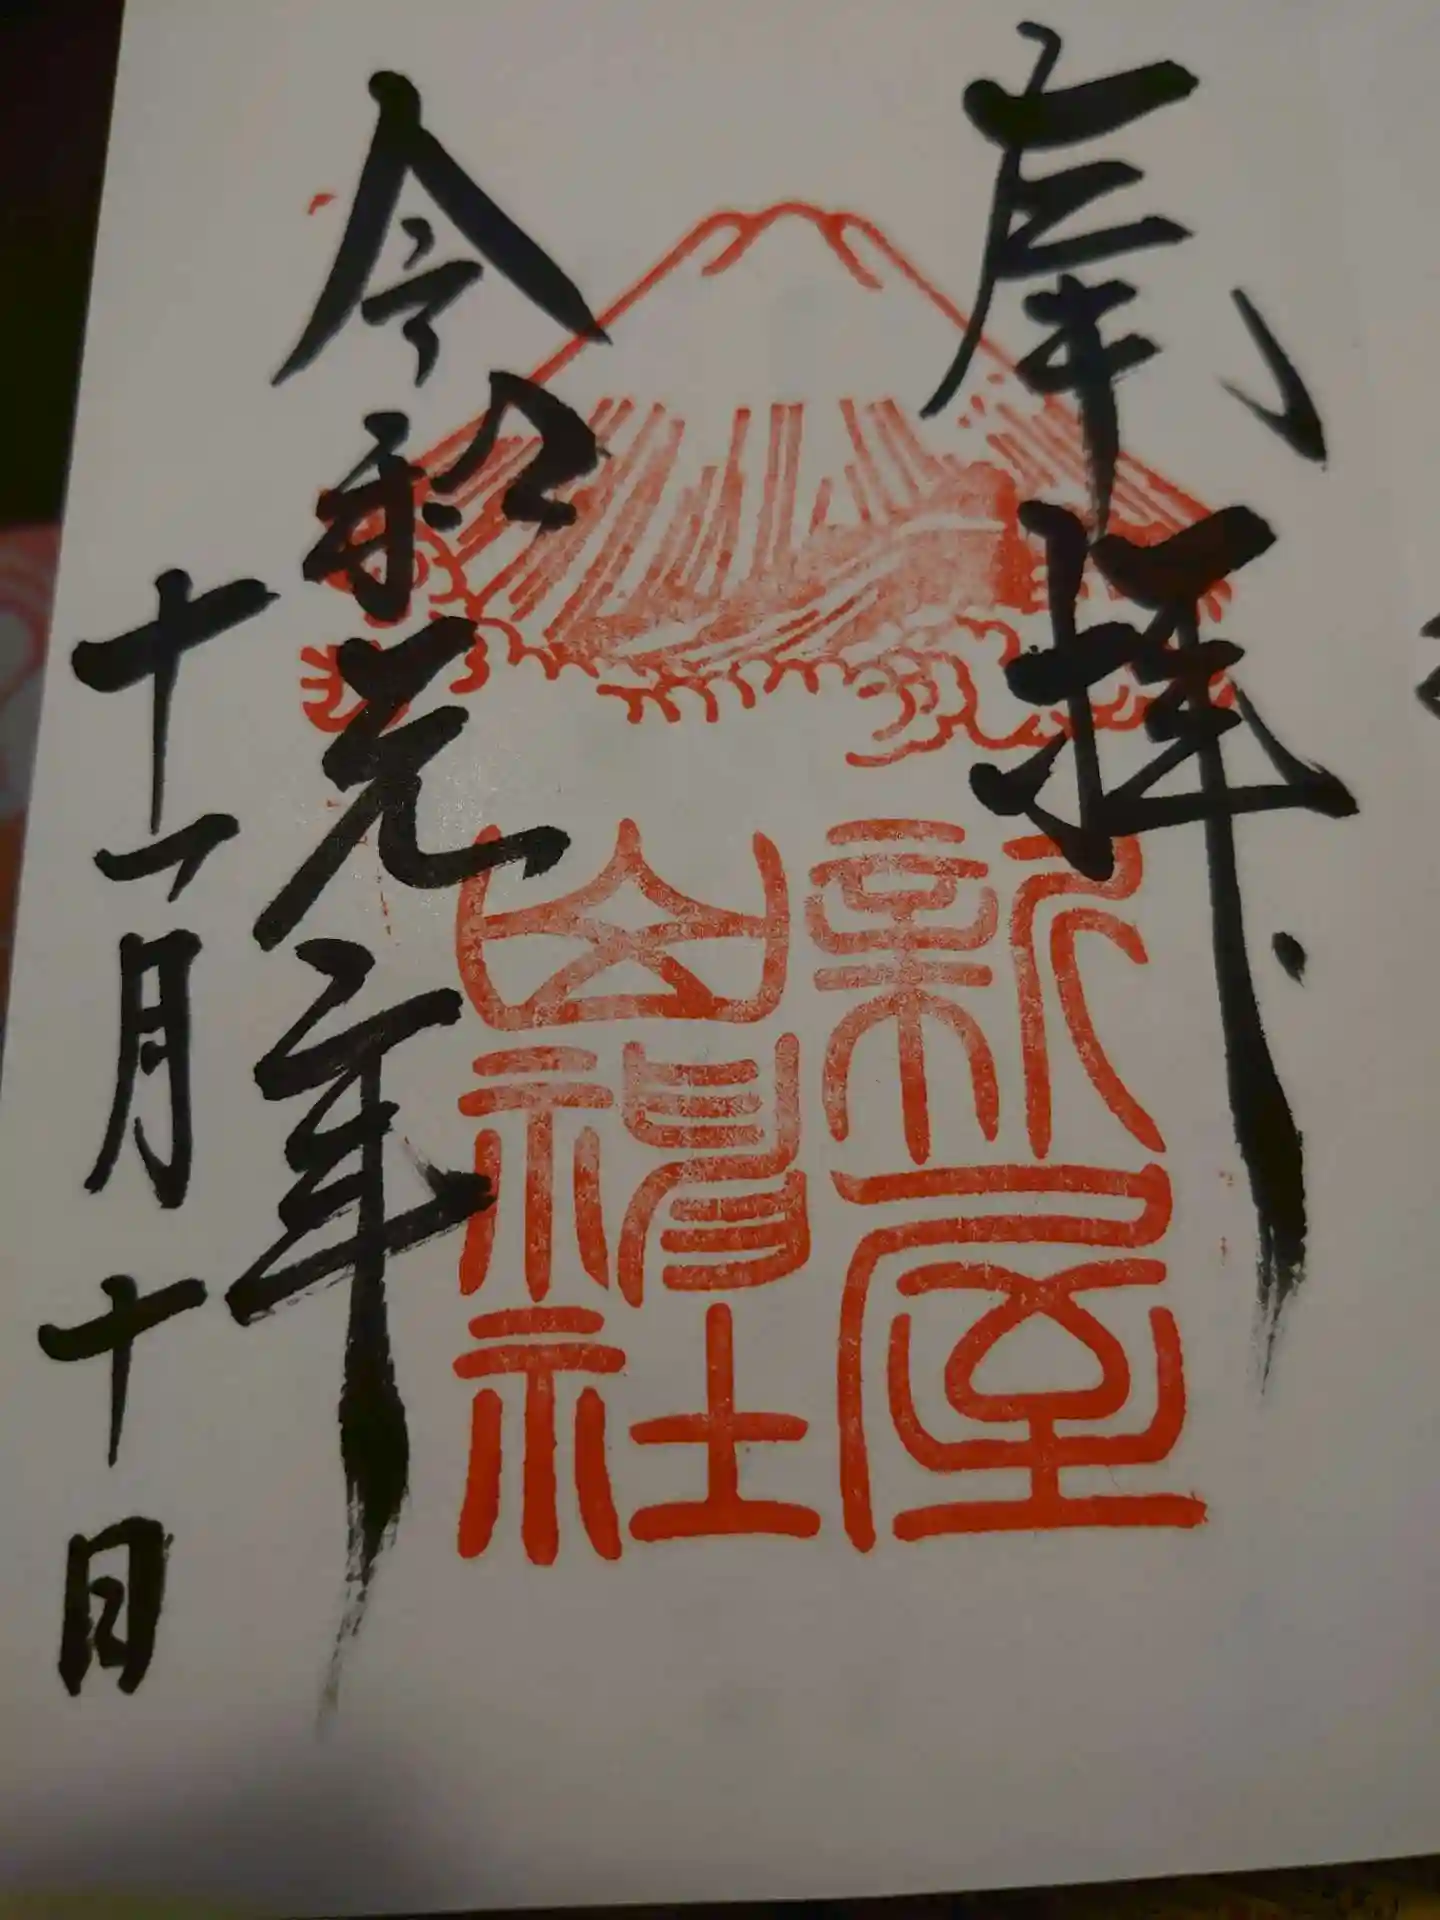 奉拝
新屋
山神社
令和元年
十一月十日